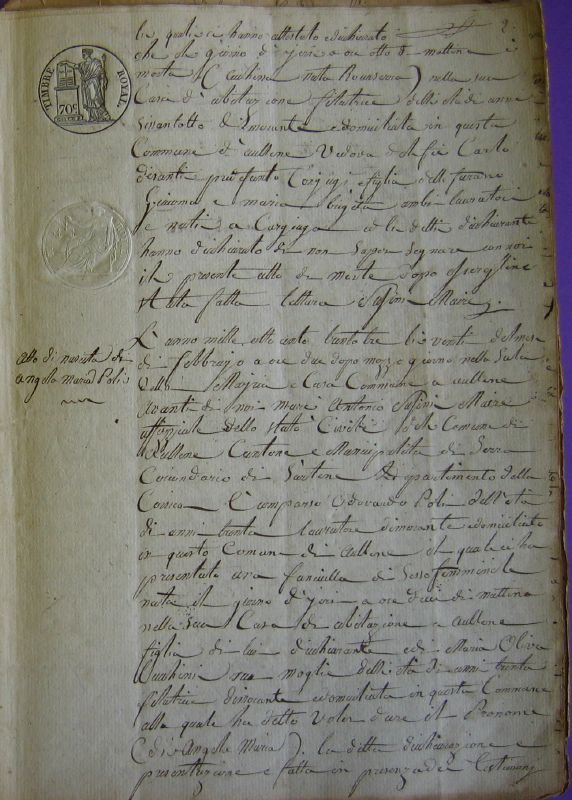 TIMBRE ROYAL
70c
2.
li quali ci hanno attestato e dichiarato
che il giorno d'jeri a ore otto di mattina è
morta (Cechina nata Roccaserra) nella sua
Casa d'abitazione filatrice dell'età di anni
Sesantotto dimorante e domiciliata in questa
Commune d'aullene Vedova del fù Carlo
e figlia delli furono
Giacomo e maria ambi lavoratori
e nati a Cargiaga e li detti dichiaranti
hanno dichiarato di non Saper Segnare con noi
il presente atto di morte dopo essergline
Stata fatta lettura Safini Maire
Atto di nascita di
angela Maria Poli
L'anno mille otto cento trenta tre li venti del mese
di febbrajo a ore due dopo mezzo giorno nella Sala
della Majria e Casa Commune a aullene
avanti di noi mari Antonio Safini Maire
uffiziale dello Stato Civile del Comune di
Aullene Cantone e Municipalità di Serra
Circondario di Sartene Dipartimento della
Corsica È Comparso Odovardo Poli dell'età
di anni trenta lavoratore dimorante e domiciliato
in questo Comune di aullene il quale ci ha
presentato una fanciulla di Sesso femminile
nata il giorno d'jeri a ore dieci di mattina
nella Sua Casa di abitazione a aullene
figlia di lui dichiarante e di Maria Oliva
sua moglie dell'età di anni trenta
filatrice dimorante e domiciliata in questa Commune
alla quale ha detto Voler dare il Pronome
(di Angela Maria). la detta dichiarazione e
presentazione e fatta in presenza di